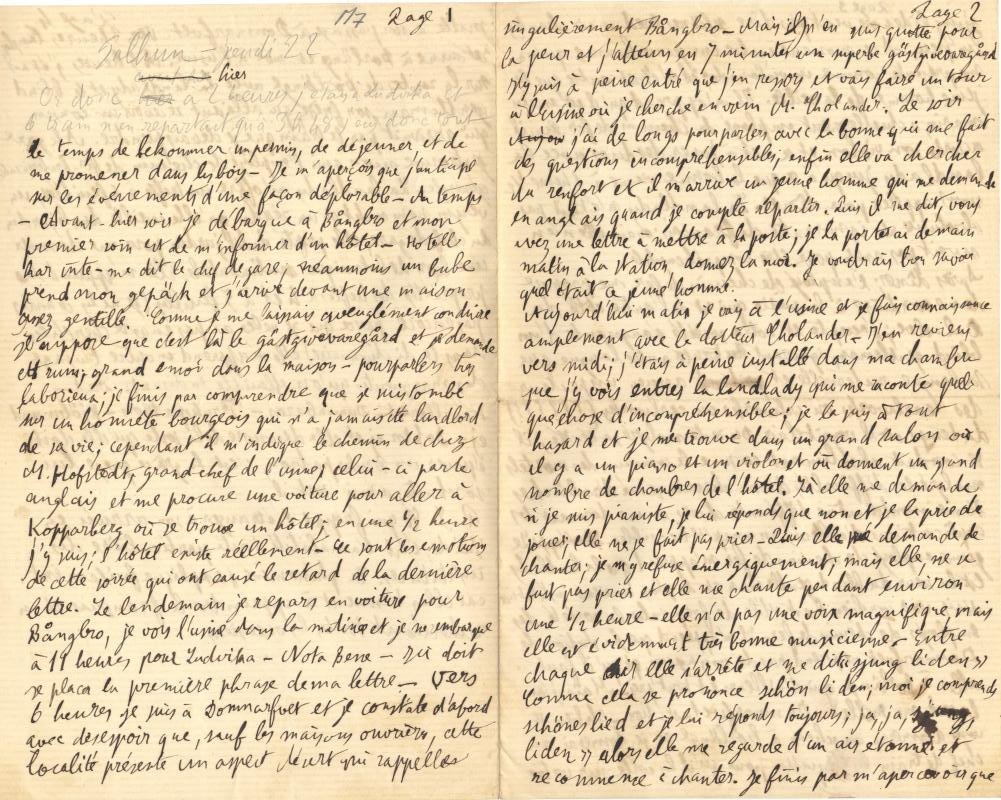 117 Page 1
Falhun - jeudi 22
hier
Or donc à 1 heure j'étais à Ludvika
le train n'en repartait qu'à
le temps de bekommer un permis, de déjeuner, et de
me promener dans les bois - Je m'aperçois que j'anticipe
sur les événements d'une façon déplorable - Au temps
- Avant-hier soir je débarque à Bångbro et mon
premier soin est de m'informer d'un hôtel - Hotell
har inte - me dit le chef de gare; néanmoins un bube
prend mon gepäck et j'arrive devant une maison
assez gentille. Comme je me laissais aveuglément conduire
je suppose que c'est là le gästgivaregård et je demande
ett rum; grand émoi dans la maison - pourparlers très
laborieux; je finis par comprendre que je suis tombé
sur un honnête bourgeois qui n'a jamais été landlord
de sa vie; cependant il m'indique le chemin de chez
M. Hofstedt, grand chef de l'usine; celui-ci parle
anglais et me procure une voiture pour aller à
Kopparberg où se trouve un hôtel; en une 1/2 heure
j'y suis; l'hôtel existe réellement - Ce sont les émotions
de cette soirée qui ont causé le retard de la dernière
lettre. Le lendemain je repars en voiture pour
Bångbro, je vois l'usine dans la matinée et je m'embarque
à 11 heures pour Ludvika - Nota Bene - Ici doit
se placer la première phrase de ma lettre. - Vers
6 heures je suis à Domnarfvet et je constate d'abord
avec désespoir que, sauf les maisons ouvrières, cette
localité présente un aspect désert qui rappelle
Page 2
singulièrement Bångbro - Mais j'en suis quitte pour
la peur et j'atteins en 7 minutes un superbe gästgivaregård
J'y suis à peine entré que j'en ressors et vais faire un tour
à l'usine où je cherche en vain M. Tholander. Le soir
j'ai de longs pourparlers avec la bonne qui me fait
des questions incompréhensibles; enfin elle va chercher
du renfort et il m'arrive un jeune homme qui me demande
en anglais quand je compte repartir. Puis il me dit, vous
avez une lettre à mettre à la poste; je la porterai demain
matin à la station, donnez la moi. Je voudrais bien savoir
quel était ce jeune homme.
Aujourd'hui matin je vais à l'usine et je fais connaissance
amplement avec le docteur Tholander - J'en reviens
vers midi; j'étais à peine installé dans ma chambre
que j'y vois entrer la landlady qui me raconte quel
que chose d'incompréhensible; je la suis à tout
hasard et je me trouve dans un grand salon où
il y a un piano et un violon et où donnent un grand
nombre de chambres de l'hôtel. Là elle me demande
si je suis pianiste, je lui réponds que non et je la prie de
jouer; elle ne se fait pas prier - Puis elle me demande de
chanter; je m'y refuse énergiquement; mais elle, ne se
fait pas prier et elle me chante pendant environ
une 1/2 heure - elle n'a pas une voix magnifique mais
elle est évidemment très bonne musicienne - Entre
chaque air elle s'arrête et me dit «sjung liden»
Comme cela se prononce schön liden; moi je comprends
schönes lied et je lui réponds toujours; ja, ja,
liden» alors elle me regarde d'un air étonné et
recommence à chanter. Je finis par m'apercevoir que